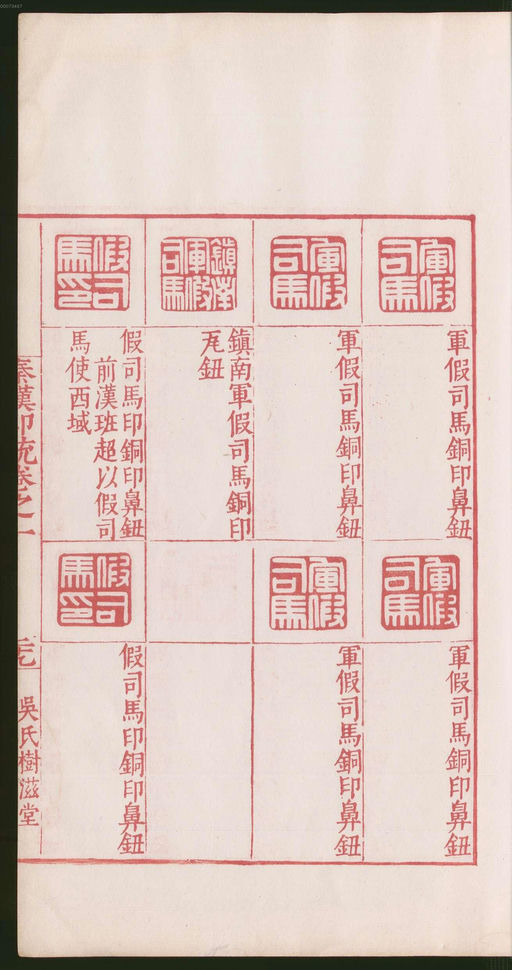 軍假司馬
軍假司馬銅印鼻鈕
軍假司馬
軍假司馬銅印鼻鈕
鎮南軍假司馬
鎮南軍假司馬銅印
瓦鈕
假司馬印
假司馬印銅印鼻鈕
前漢班超以假司
馬使西域
軍假司馬
軍假司馬銅印鼻鈕
軍假司馬
軍假司馬銅印鼻鈕
假司馬印
假司馬印銅印鼻鈕
秦漢印統卷之一
吳氏樹滋堂
00073447